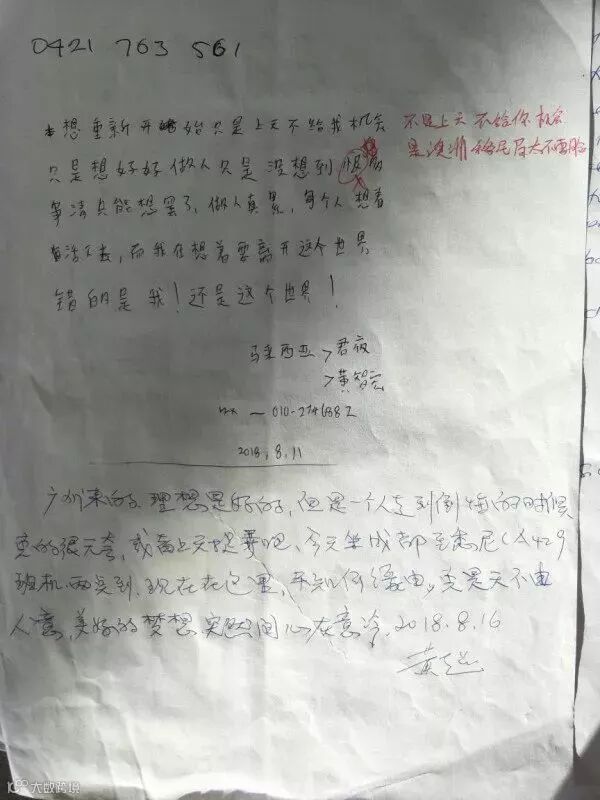 0421 763 561
想重新开始只是上天不给我机会
不是上天不给你机会
是澳洲移民局太不要脸
只是想好好做人只是没想到很多
事情只能想罢了,做人真累,每个人想着
活下去,而我在想着要离开这个世界,
错的是我!还是这个世界!
马来西亚>君夜
>黄智宏
010-2746882
2018.8.11
广州来的,理想是好的,但是一个人走到倒楣的时候
真的很无奈,或者上天注定吧,今天坐成都至悉尼CA429
班机两点到,现在在这里,不知何缘由,真是天不由
人意,美好的梦想突然间心灰意冷,2018.8.16
黄
大数跨境